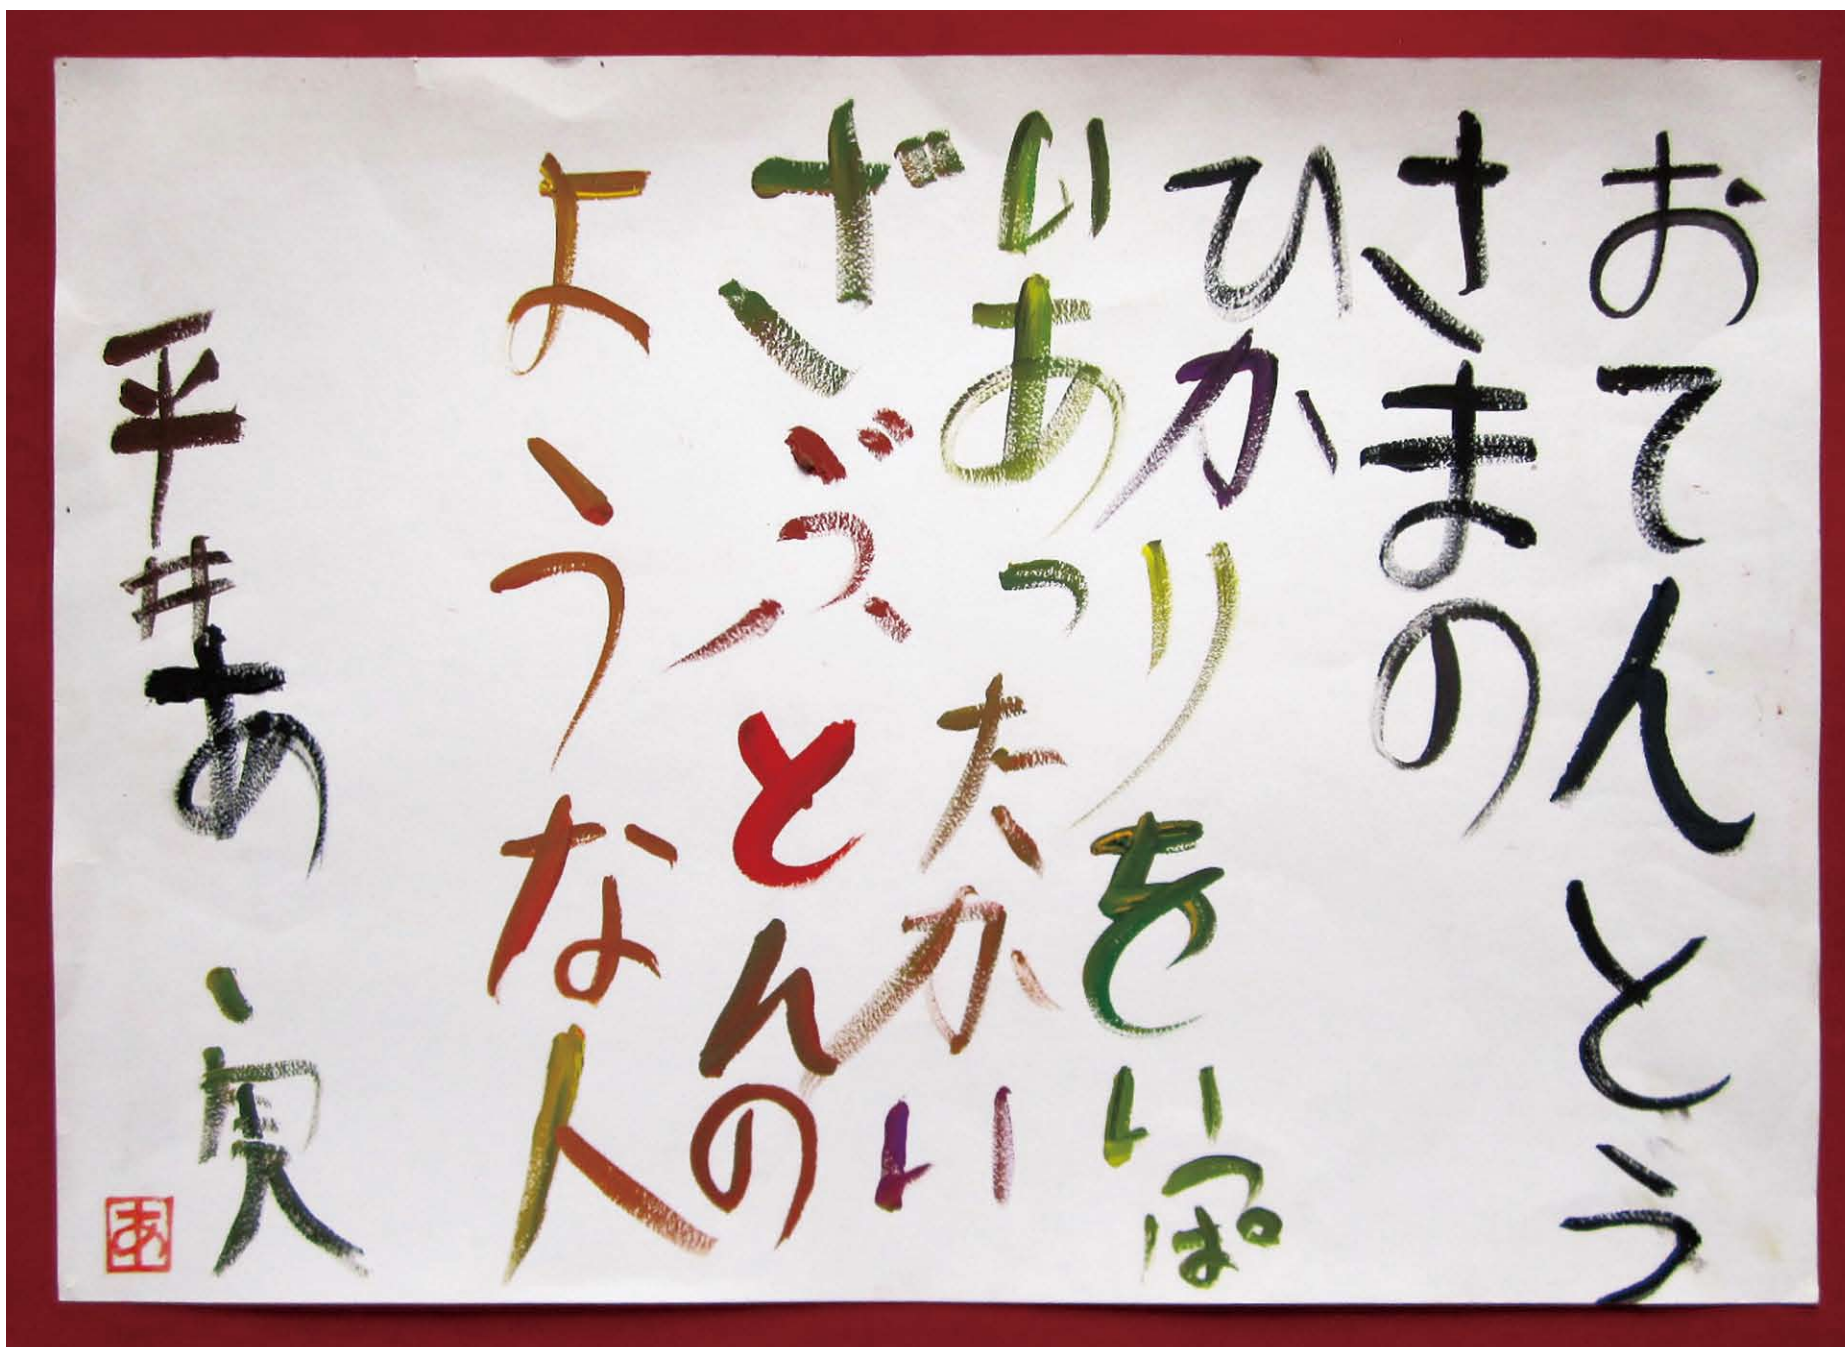 おてんとう
さまの
ひかりをいっぱ
いあったかい
ざぶとんの
ような人
平井あ実
あ